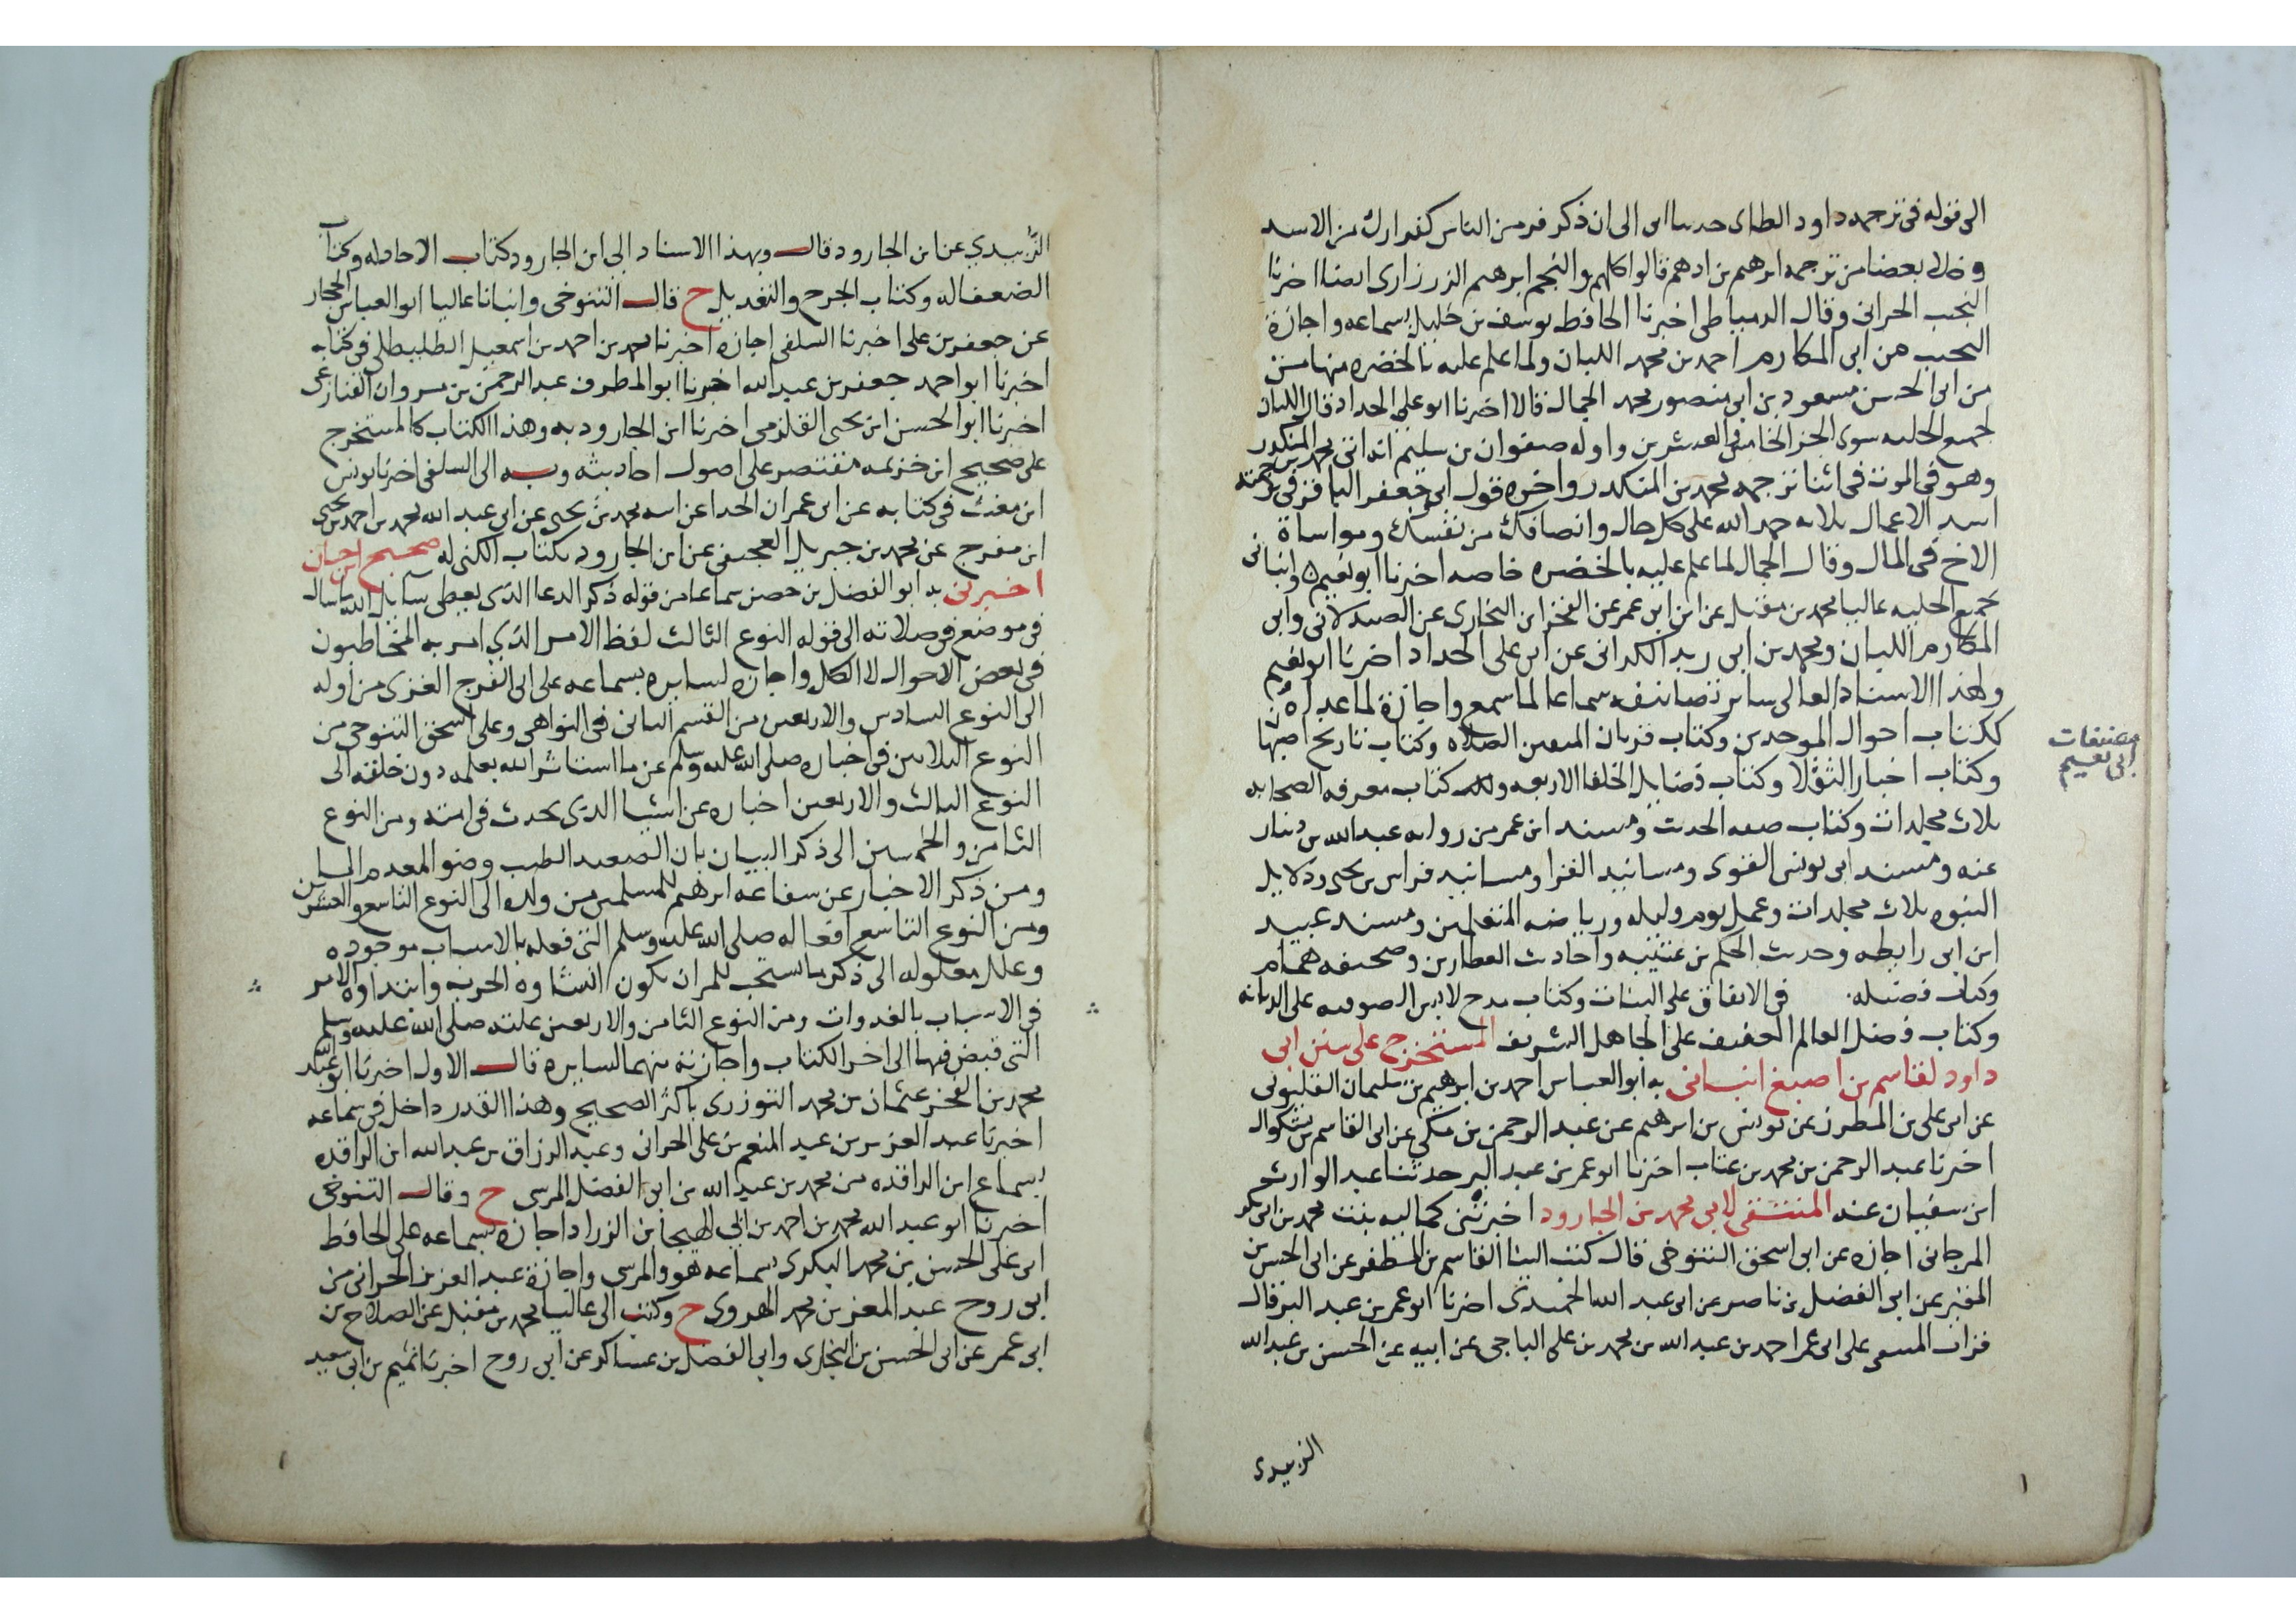 الى قوله فى ترجمه داود الطاى حدسا ابى الى ان ذكر فر من الناس كفرارك من الاسد
بعضا من ترجمه ابرهيم بن ادهم قالوا كلهم والنجم ابرهيم الزرزارى ايضا اخبرنا
النجيب الحرانى وقال الدمياطى اخبرنا الحافظ يوسف بن خليل بسماعه واجازة
النجيب من ابى المكارم احمد بن محمد اللبان ولما علم عليه بالخضره منها من
من ابى الحسن مسعود بن ابى منصور محمد الجمال قالا اخبرنا ابو على الحداد قال اللبان
لجميع الحليه سوى الجز الخامس والعشرين واوله صفوان بن سليم انه اتى محمد بن المنكدر
وهو فى الموت فى اثنا ترجمه محمد بن المنكدر واخره قول ابى جعفر الباقر فى ترجمته
اسد الاعمال ثلاثه حمد الله على كل حال وانصافك من نفسك ومواساة
الاخ فى المال وقال الجمال لما علم عليه بالخضره خاصه اخبرنا ابو نعيم ٥ وانبانى
بجميع الحليه عاليا محمد بن مقبل عن ابن ابى عمر عن الفخر ابن البخارى عن الصيدلانى وابى
المكارم اللبان ومحمد بن ابى زيد الكرانى عن ابى على الحداد اخبرنا ابو نعيم
ولهذا الاسناد العالى ساير تصانيفه سماعا لما سمع واجازة لما عداه
ككتاب احوال الموحدين وكتاب قربان المتقين الصلاه وكتاب تاريخ اصبهان
وكتاب اخبار الثقلا وكتاب فضايل الخلفا الاربعه وله كتاب معرفه الصحابه
ثلاث مجلدات وكتاب صفه الجنه ومسند ابن عمر من روايه عبد الله بن دينار
عنه ومسند ابى يونس القوى ومسانيد الفرا ومسانيد فراس بن يحيى ودلايل
النبوه ثلاث مجلدات وعمل يوم وليله ورياضه المتعلمين ومسند عبيد
ابن ابى رابطه وحديث الحكم بن عتيبه واحاديث العطارين وصحيفه همام
وكتاب فضيله فى الانفاق على البنات وكتاب مدح لابس الصوف على الديانه
وكتاب فضل العالم العفيف على الجاهل الشريف المستخرج على سنن ابى
داود لقاسم بن اصبغ انبانى به ابو العباس احمد بن ابرهيم بن سليمان القليوبى
عن ابى على بن المطرز عن يونس بن ابرهيم عن عبد الرحمن بن مكى عن ابى القاسم بن بشكوال
اخبرنا عبد الرحمن بن محمد بن عتاب اخبرنا ابو عمر بن عبد البر حدثنا عبد الوارث
ابن سفيان عنه المنتقى لابى محمد بن الجارود اخبرتنى كماليه بنت محمد بن ابى بكر
المرجانى اجازه عن ابى اسحق التنوخى قال كتب الينا القاسم بن المظفر عن ابى الحسن بن
المقير عن ابى الفضل بن ناصر عن ابى عبد الله الحميدى اخبرنا ابو عمر بن عبد البر قال
قرات المنتقى على ابى عمر احمد بن عبد الله بن محمد بن على الباجى عن ابيه عن الحسن بن عبد الله
الزبيدى
مصنفات
ابى نعيم
الزبيدي عن ابن الجارود قال وبهذا الاسناد الى ابن الجارود كتاب الاحاد له وكتاب
الضعفا له وكتاب الجرح والتعديل ح قال التنوخى وانبانا عاليا ابو العباس الحجار
عن جعفر بن على اخبرنا السلفى اجازه اخبرنا محمد بن احمد بن اسمعيل الطليطلى فى كتابه
اخبرنا ابو احمد جعفر بن عبد الله اخبرنا ابو المطرف عبد الرحمن بن مروان القنازعى
اخبرنا ابو الحسن ابن يحيى القلزمى اخبرنا ابن الجارود به وهذا الكتاب كالمستخرج
على صحيح ابن خزيمه مقتصر على اصول احاديثه وبه الى السلفى اخبرنا يونس
ابن مغيث فى كتابه عن ابى عمران الحدا عن ابيه محمد بن يحيى عن ابى عبد الله محمد بن احمد بن يحيى
ابن مفرج عن محمد بن جبريل العجيفى عن ابن الجارود بكتاب الكنى له صحيح ابن حبان
اخبرنى به ابو الفضل بن حصن سماعا من قوله ذكر الدعا الذى يعطى سايل الله ما سال
فى موضع فى صلاته الى قوله النوع الثالث لفظ الامر الذي امر به المخاطبون
فى بعض الاحوال لا الكل واجازه لسايره بسماعه على ابى الفرج الغزى من اوله
الى النوع السادس والاربعين من القسم الثانى فى النواهى وعلى ابى اسحق التنوخى من
النوع الثلاثين فى اخباره صلى الله عليه وسلم عن ما استاثر الله بعلمه دون خلقه الى
النوع الثالث والاربعين اخباره عن اشيا الذى يحدث فى امته ومن النوع
الثامن والخمسين الى ذكر البيان بان الصعيد الطيب وضو المعدم الما
ومن ذكر الاخبار عن شفاعه ابرهيم للمسلمين من ولده الى النوع التاسع والعشرين
ومن النوع التاسع افعاله صلى الله عليه وسلم التى فعله بالاسباب موجوده
وعلل معلوله الى ذكر ما يستحب للمران يكون انشاوه الحرب وابتداوه الامر
فى الاسباب بالغدوات ومن النوع الثامن والاربعين علته صلى الله عليه وسلم
التى قبض فيها الى اخر الكتاب واجازته منهما لسايره قال الاول اخبرنا ابو عبد الله
محمد بن الفخر عثمان بن محمد التوزرى باكثر الصحيح وهذا القدر داخل فى سماعه
اخبرنا عبد العزيز بن عبد المنعم بن على الحرانى وعبد الرزاق بن عبد الله ابن الراقده
بسماع ابن الراقده من محمد بن عبد الله بن ابى الفضل المرسى ح وقال التنوخى
اخبرنا ابو عبد الله محمد بن احمد بن ابي الهيجا بن الزراد اجازه بسماعه على الحافظ
ابى على الحسن بن محمد البكرى بسماعه هو والمرسى واجازة عبد العزيز الحرانى من
ابى روح عبد المعز بن محمد الهروى ح وكتب الى عاليا محمد بن مقبل عن الصلاح بن
ابى عمر عن ابى الحسن بن البخارى وابى الفضل بن عساكر عن ابى روح اخبرنا تميم بن ابى سعيد